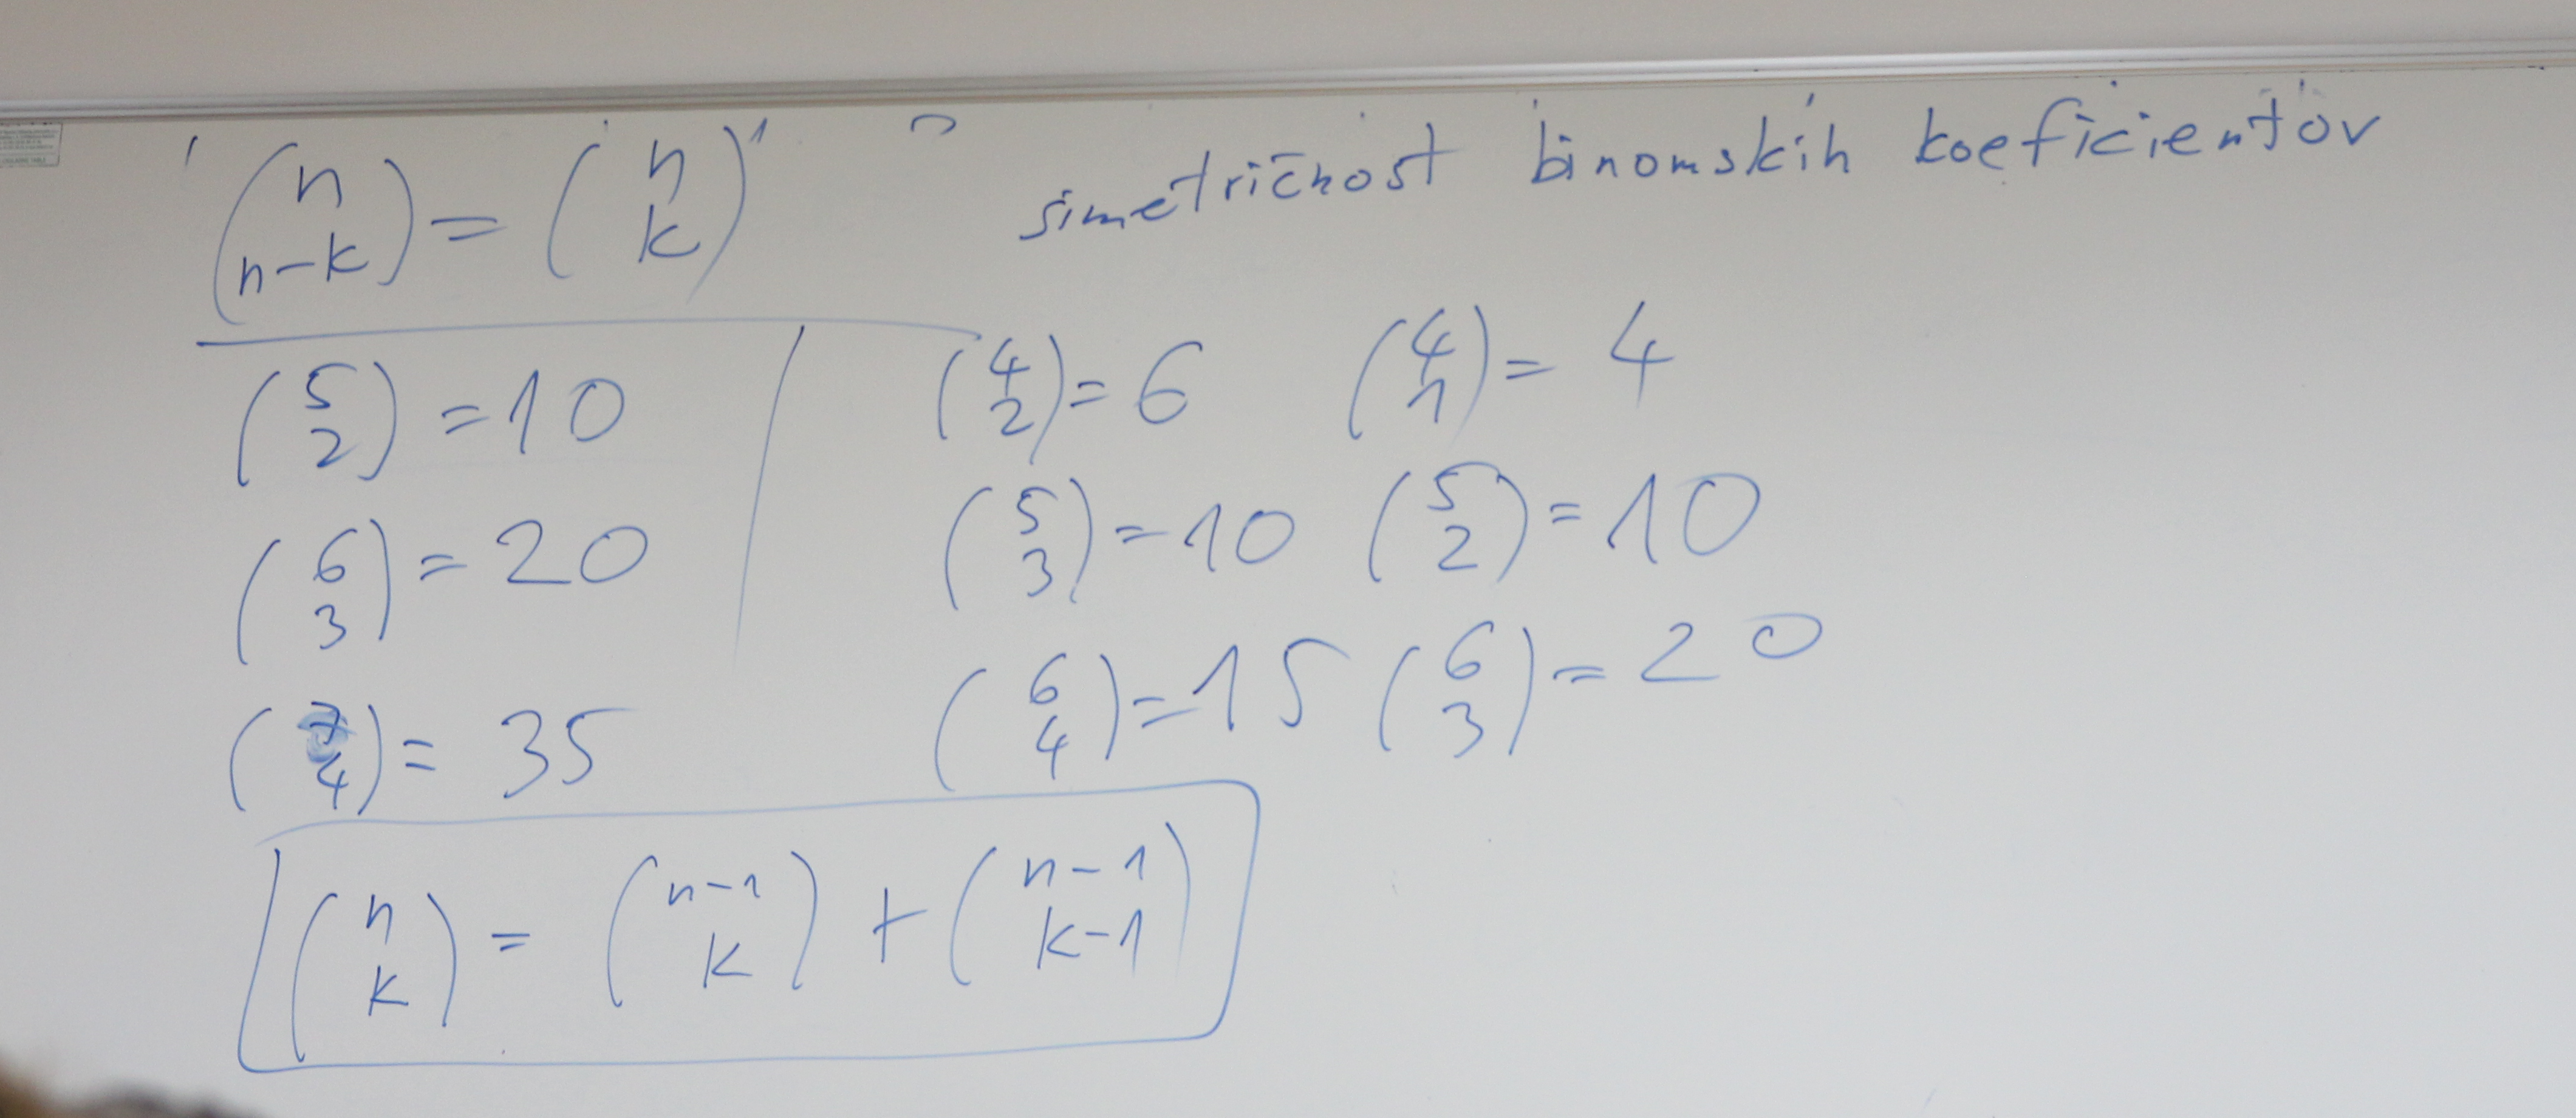 (n n-k) = (n k) simetričnost binomskih koeficientov
(5 2) = 10 (4 2) = 6 (4 1) = 4
(6 3) = 20 (5 3) = 10 (5 2) = 10
(7 4) = 35 (6 4) = 15 (6 3) = 20
(n k) = (n-1 k) + (n-1 k-1)